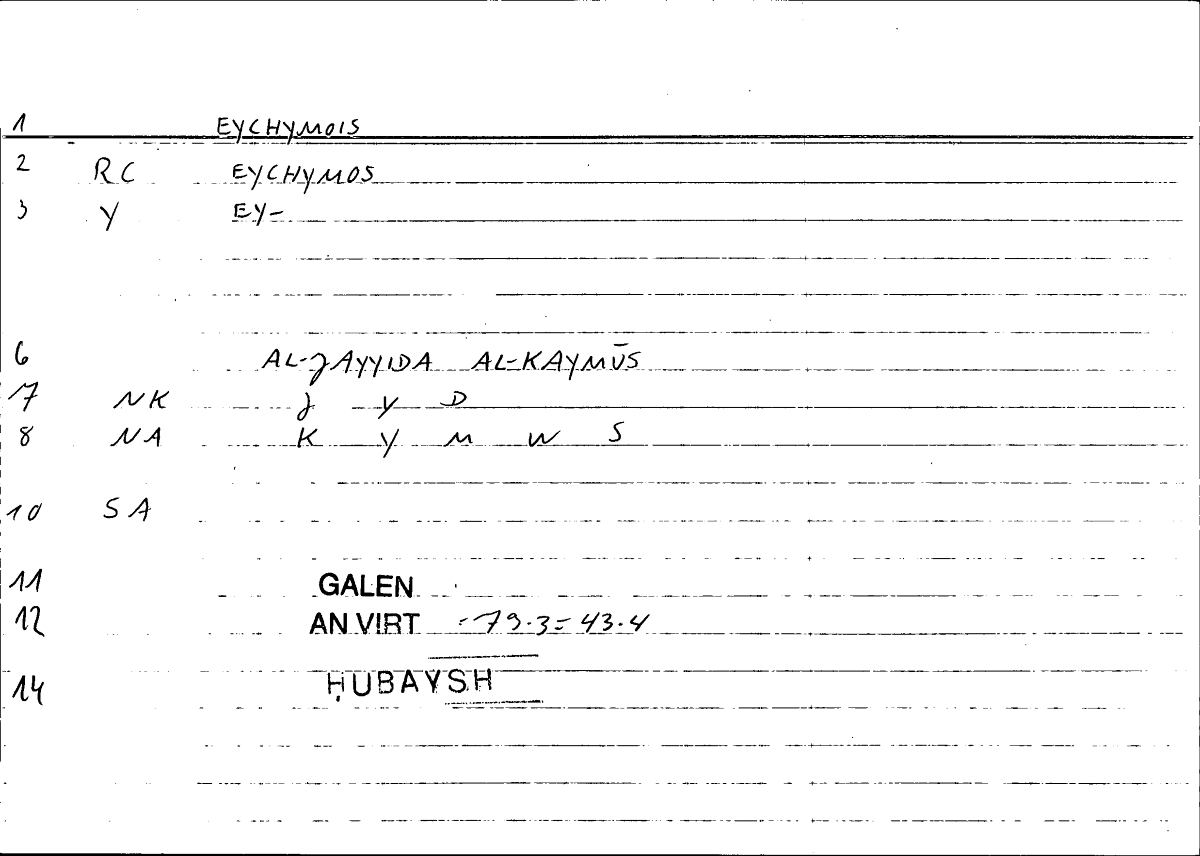 1 EYCHYMOIS
2 RC EYCHYMOS
3 Y EY-
6 AL-JAYYIDA AL-KAYMŪS
7 NK J Y D
8 NA K Y M W S
10 SA
11 GALEN
12 AN VIRT 79.3=43.4
14 ḤUBAYSH